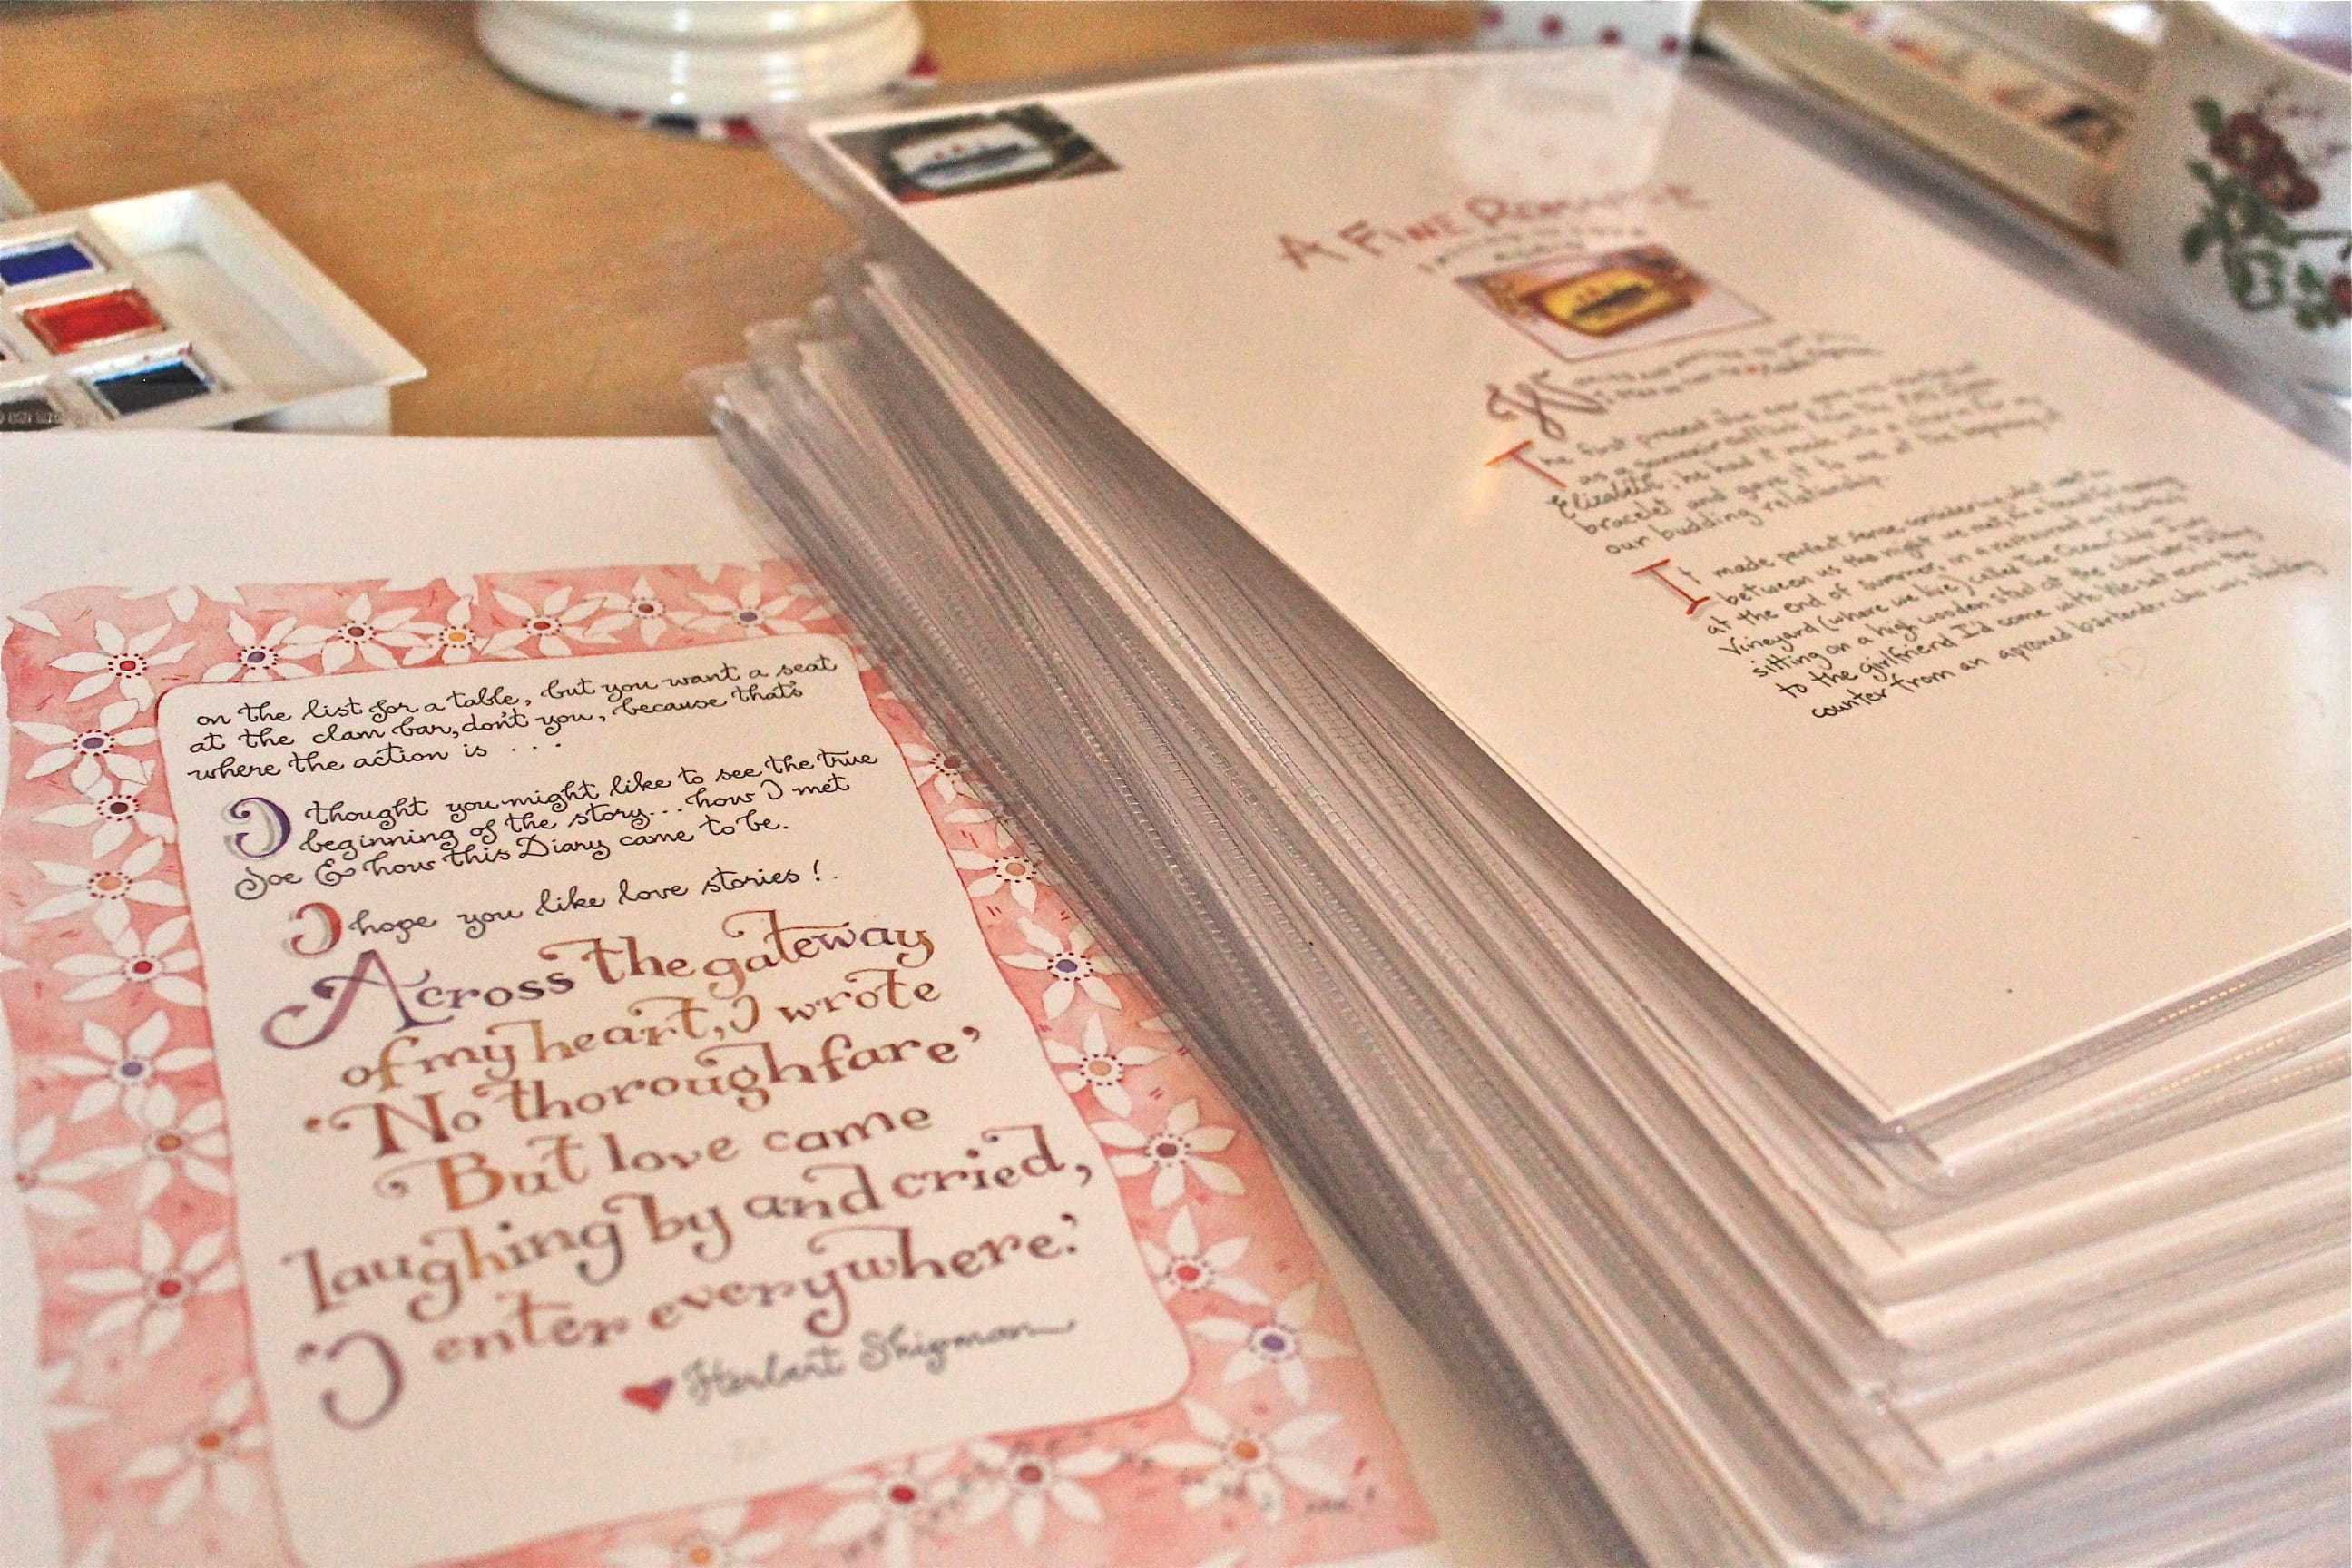 on the list for a table, but you want a seat
at the clam bar, don't you, because that's
where the action is . . .
I thought you might like to see the true
beginning of the story... how I met
Joe & how this Diary came to be.
I hope you like love stories!
Across the gateway
of my heart, I wrote
'No thoroughfare'
But love came
laughing by and cried,
'I enter everywhere.'
Herbert Shipman
A FINE ROMANCE
The first present Joe ever gave me
as a souvenir
Elizabeth; he had it made into a charm for my
bracelet and gave it to me at the beginning of
our budding relationship.
It made perfect sense, considering what went on
between us the night we met,
at the end of summer, in a restaurant on Martha's
Vineyard (where we live) called The Ocean Club. I was
sitting on a high wooden stool at the clam bar, talking
to the girlfriend I'd come with. We sat across the
counter from an aproned bartender who was shucking